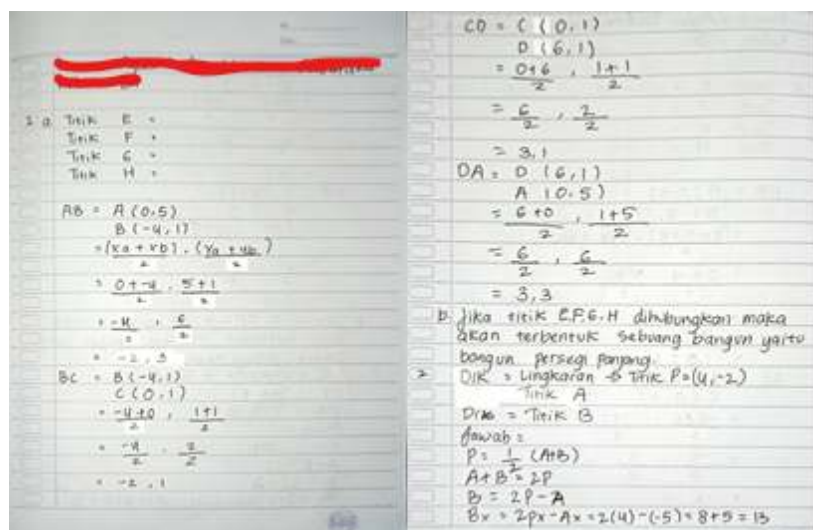 1 a Titik E =
Titik F =
Titik G =
Titik H =
AB = A (0,5)
B (-4,1)
= (xa + xb) , (ya + yb)
2 2
= 0+-4 , 5+1
2 2
= -4 , 6
2 2
= -2, 3
BC = B (-4,1)
C (0,1)
= -4+0 , 1+1
2 2
= -4 , 2
2 2
= -2, 1
CD = C (0,1)
D (6,1)
= 0+6 , 1+1
2 2
= 6 , 2
2 2
= 3,1
DA = D (6,1)
A (0,5)
= 6+0 , 1+5
2 2
= 6 , 6
2 2
= 3,3
b. Jika titik E,F,G,H dihubungkan maka
akan terbentuk sebuang bangun yaitu
bangun persegi panjang.
2 Dik = Lingkaran → Titik P = (4,-2)
Titik A
= Titik B
Jawab =
P = 1/2 (A+B)
A+B = 2P
B = 2P-A
Bx = 2Px-Ax = 2(4)-(-5) = 8+5 = 13